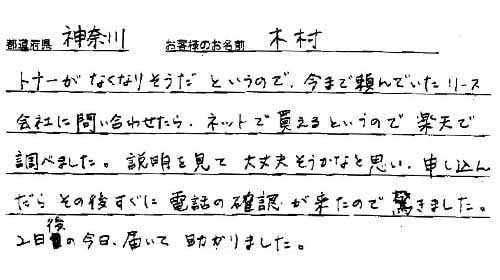 都道府県 神奈川 お客様のお名前 木村
トナーがなくなりそうだ というので、今まで頼んでいたリース
会社に問い合わせたら、ネットで買えるというので 楽天で
調べました。説明を見て 大丈夫そうかなと思い、申し込ん
だら その後すぐに 電話の確認 が来たので 驚きました。
2日後の今日、届いて 助かりました。